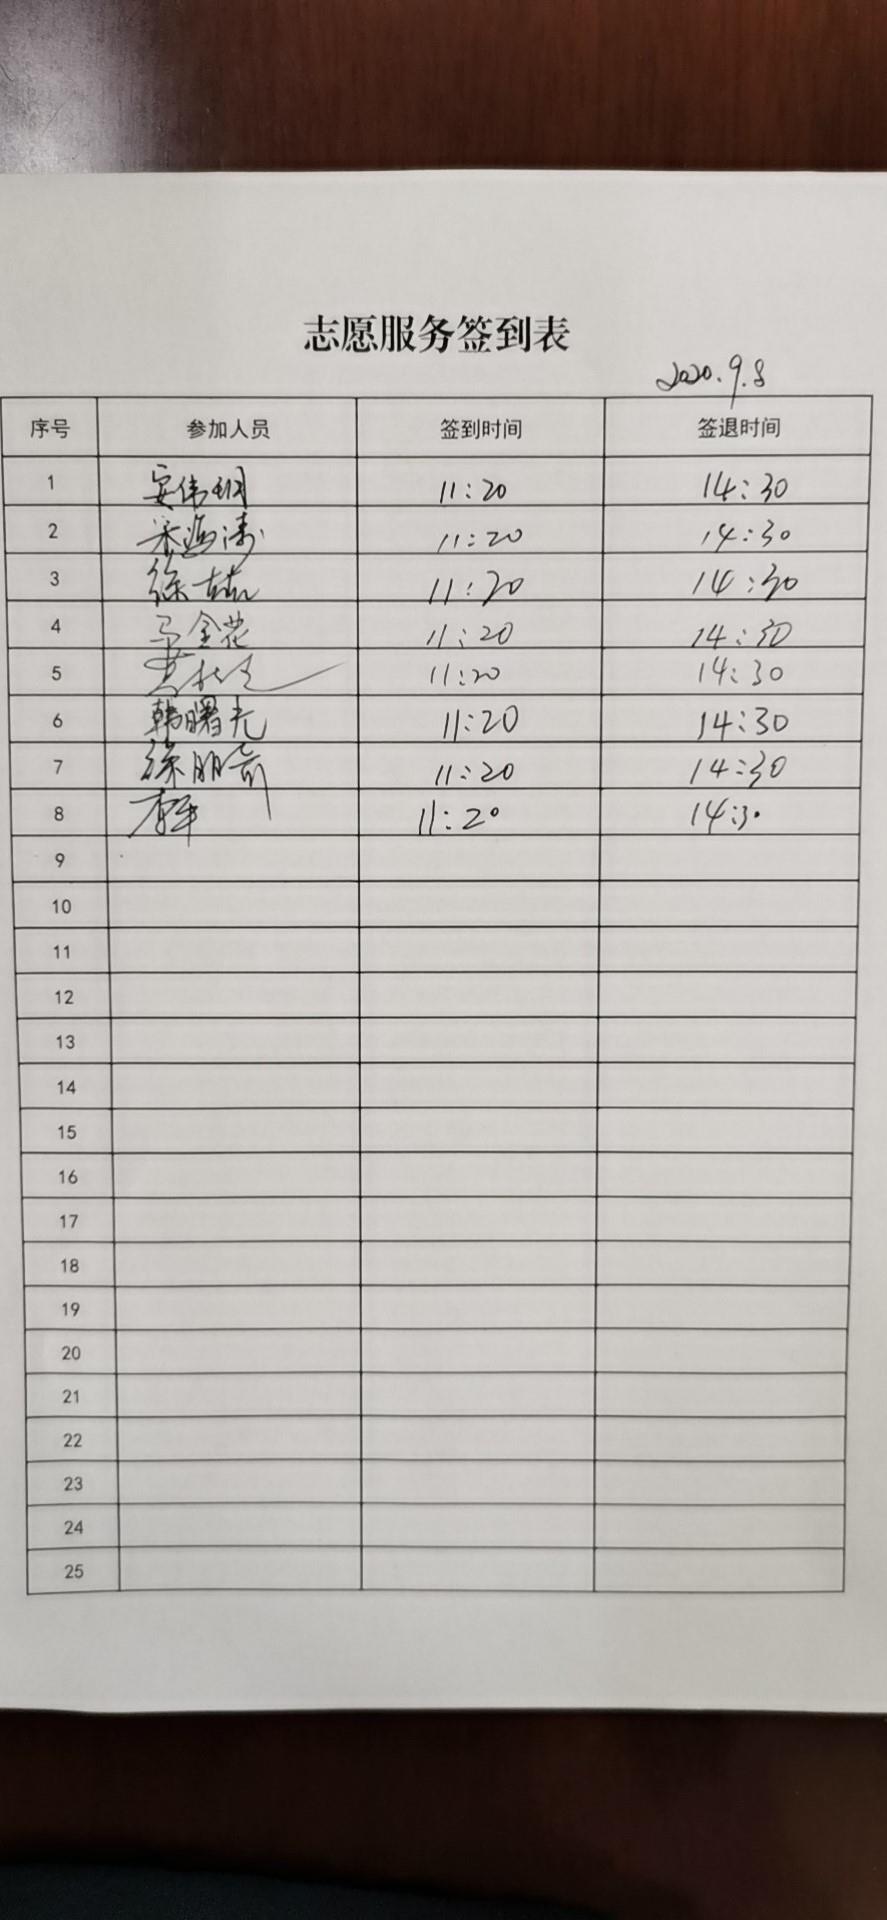 志愿服务签到表
2020.9.8
序号 参加人员 签到时间 签退时间
1 安伟钢 11:20 14:30
2 宋海涛 11:20 14:30
3 徐喆 11:20 14:30
4 马金花 11:20 14:30
5 11:20 14:30
6 韩曙光 11:20 14:30
7 徐朋 11:20 14:30
8 李军 11:20 14:30
9
10
11
12
13
14
15
16
17
18
19
20
21
22
23
24
25